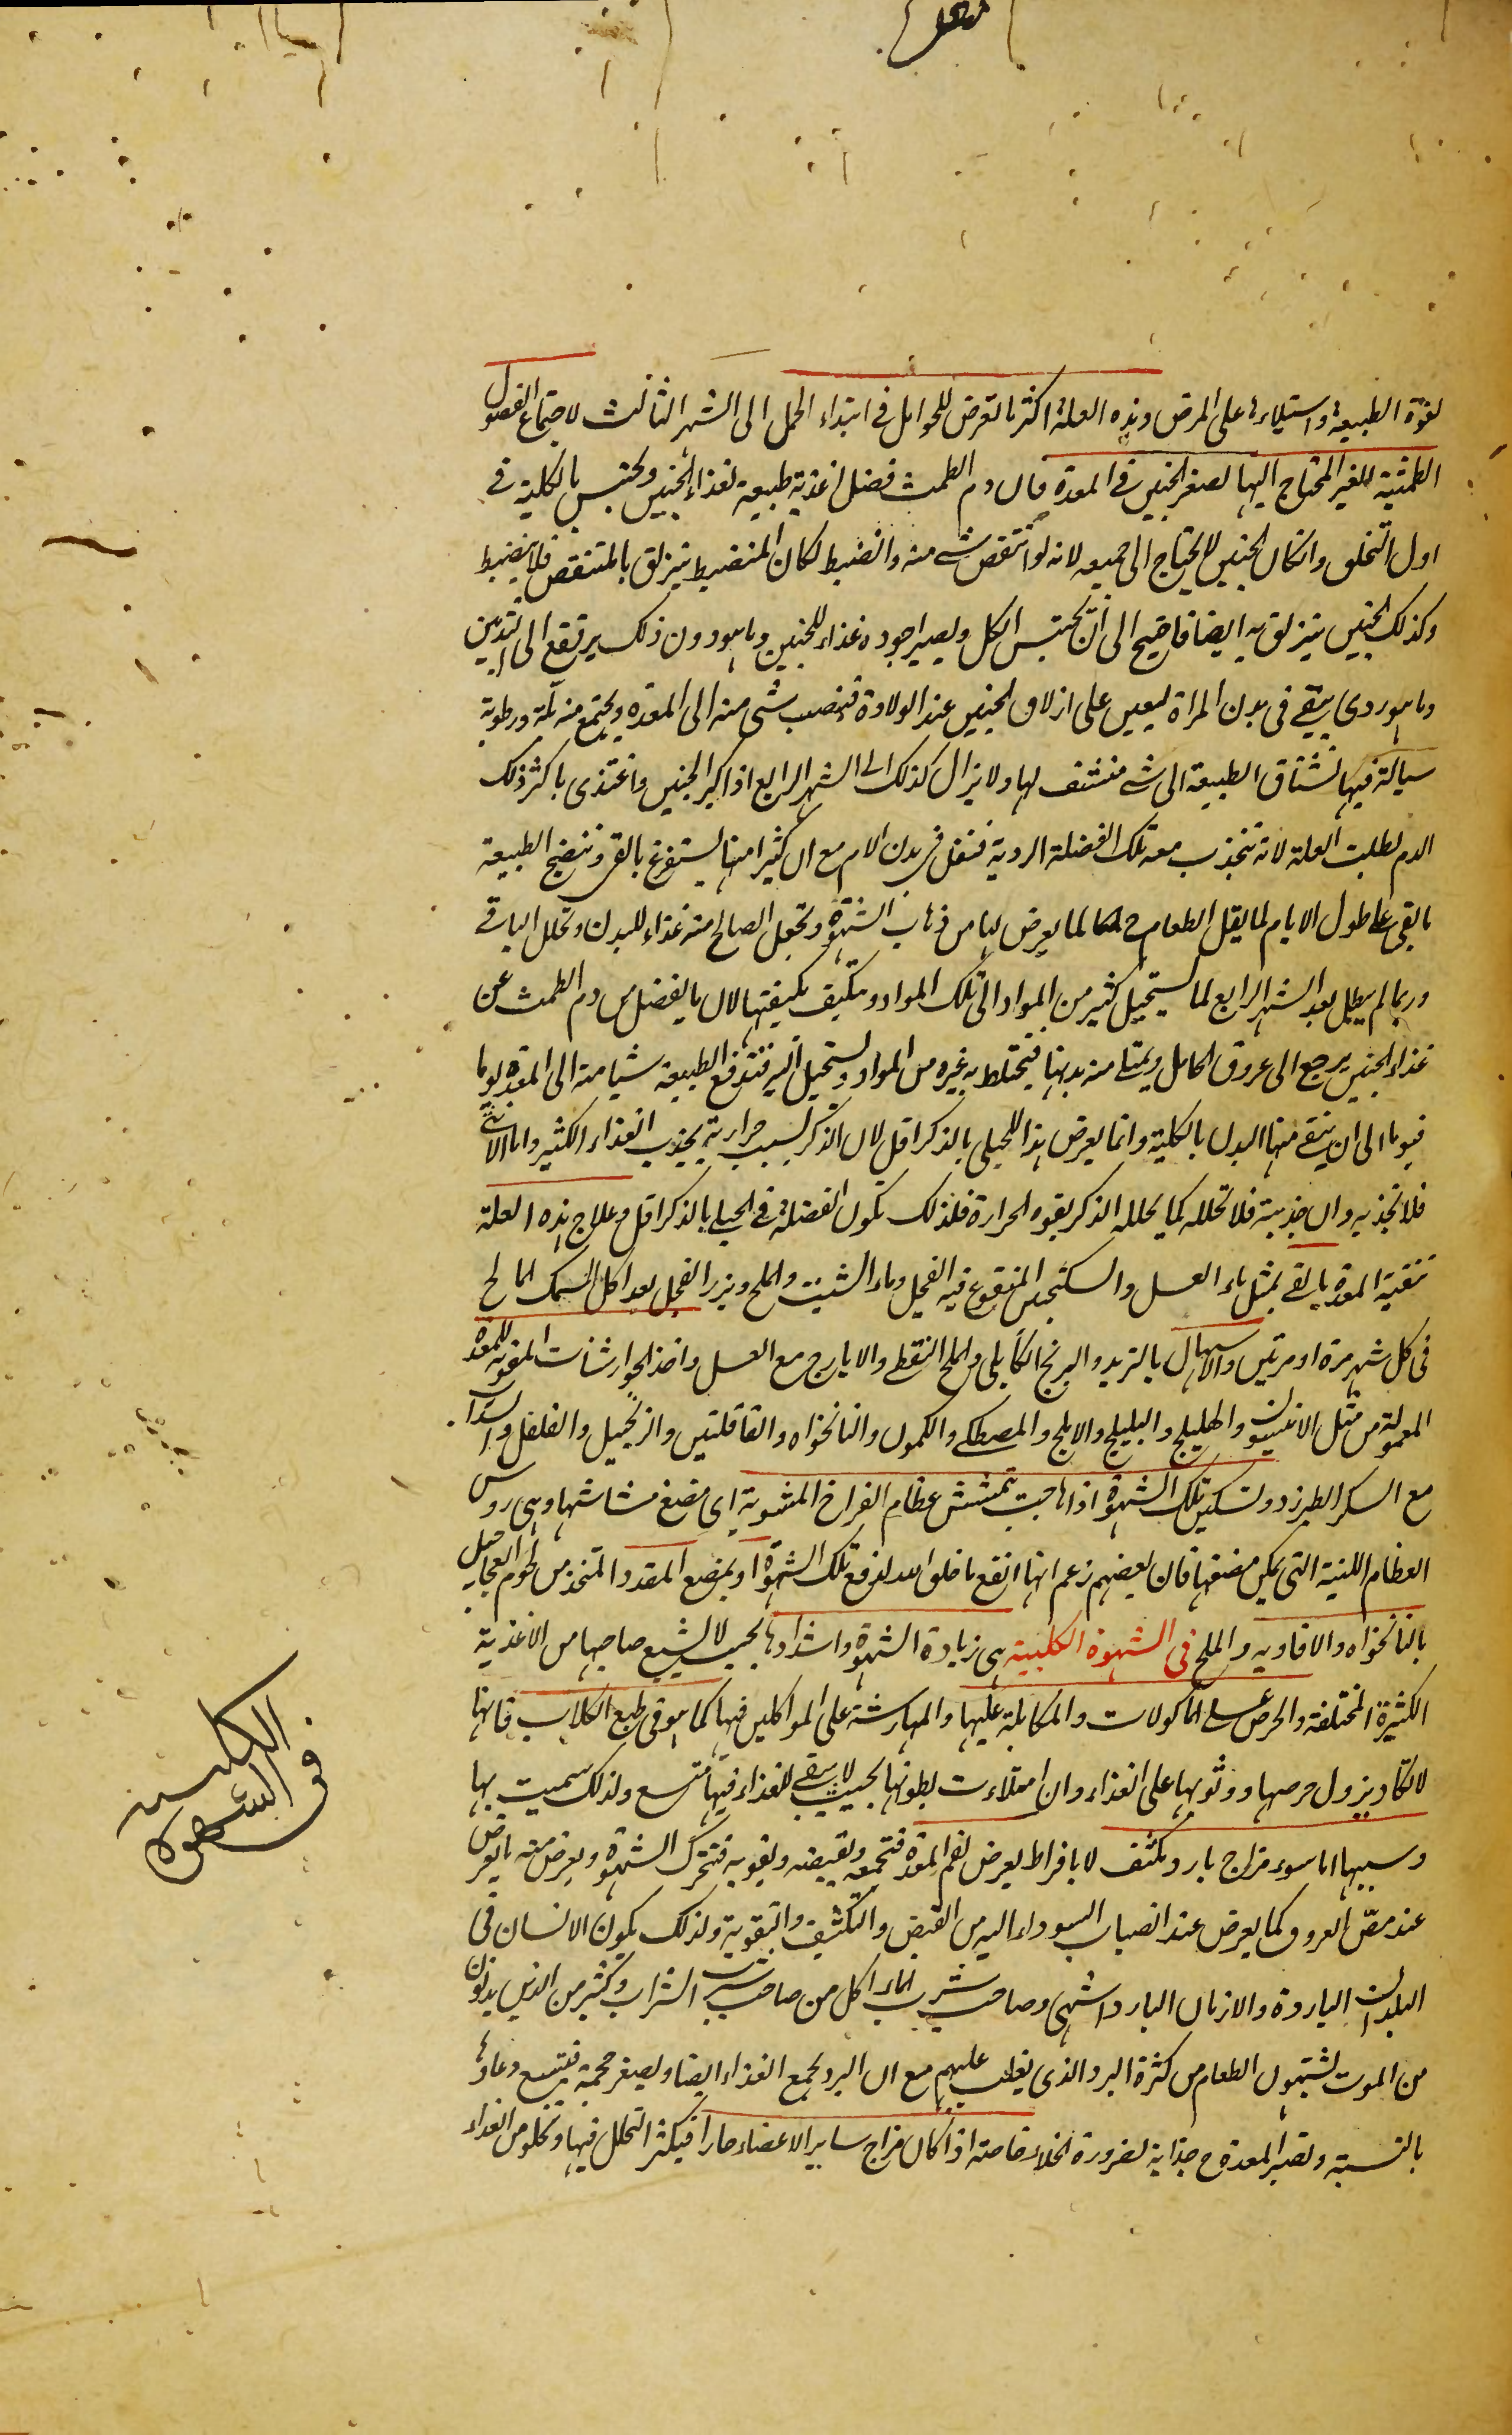 لقوة الطبيعة واستيلاءها على المرض وهذه العلة اكثر ما تعرض للحوامل فى ابتداء الحمل الى الشهر الثالث لاجتماع الفضول
الطمثية الغير المحتاج اليها لصغر الجنين فى المعدة فان دم الطمث فضل اغذية طبيعية لغذاء الجنين ويحتبس بالكلية فى
اول التخلق وان كان الجنين لا يحتاج الى جميعه لانه لو انتقض شئ منه وانضبط لكان المنضبط ينزلق بالمنتقض فلا ينضبط
وكذلك الجنين ينزلق به ايضا فاحتيج الى ان يحتبس الكل ويصير اجوده غذاء للجنين وما هو دون ذلك يرتفع الى الثديين
وما هو ردى يبقى فى بدن المراة ليعين على ازلاق الجنين عند الولادة فينصب شئ منه الى المعدة ويجتمع منه بلة ورطوبة
سيالة فيها تشتاق الطبيعة الى شئ منشف لها ولا يزال كذلك الى الشهر الرابع اذا كبر الجنين واغتذى باكثر ذلك
الدم بطلت العلة لانه تنجذب معه تلك الفضلة الردية فتقل فى بدن الام مع ان كثيرا منها يستفرغ بالقى وتنضج الطبيعة
ما بقى على طول الايام لما يقل الطعام لما يعرض لها من ذهاب الشهوة وتجعل الصالح منه غذاء للبدن وتحلل الباقى
وربما لم يبطل بعد الشهر الرابع لما يستحيل كثير من المواد الى تلك المواد ويتكيف بكيفيتها لان ما يفضل من دم الطمث عن
غذاء الجنين يرجع الى عروق الحامل ويمتلى منه بدنها فيختلط به غيره من المواد ويستحيل اليه فتدفع الطبيعة شيا منه الى المعدة يوما
فيوما الى ان ينقى منها البدن بالكلية وانما يعرض هذا للحبلى بالذكر اقل لان الذكر بسبب حرارته يجذب الغذاء الكثير واما الانثى
فلا تجذبه وان جذبته فلا تحلله كما يحلله الذكر بقوة الحرارة فلذلك تكون الفضلة فى الحبلى بالذكر اقل وعلاج هذه العلة
تنقية المعدة بالقى بمثل ماء العسل والسكنجبين المنقوع فيه الفجل وماء الشبت والملح وبزر الفجل بعد اكل السمك المالح
فى كل شهر مرة او مرتين والاسهال بالتربد والبرنج الكابلى والملح النفطى والايارج مع العسل واخذ الجوارشنات المقوية للمعدة
المعمولة من مثل الانيسون والهليلج والبليلج والاملج والمصطكى والكمون والنانخواه والقاقلتين والزنجبيل والفلفل
مع السكر الطبرزد وتسكين تلك الشهوة اذا هاجت بتمشش عظام الفراخ المشوية اى مضغ مشاشها وهى روس
العظام اللينة التى يمكن مضغها فان بعضهم زعم انها انفع ما خلق الله لدفع تلك الشهوة او بمضغ المقدد المتخذ من لحوم العجاجيل
بالنانخواه والافاويه والملح فى الشهوة الكلبية هى زيادة الشهوة واشتدادها بحيث لا يشبع صاحبها من الاغذية
الكثيرة المختلفة والحرص على الماكولات والمكالبة عليها والمهارشة على المواكلين فيها كما هو فى طبع الكلاب فانها
لا تكاد يزول حرصها ووثوبها على الغذاء وان امتلاءت بطونها بحيث لا يبقى للغذاء فيها متسع ولذلك سميت بها
وسببها اما سوء مزاج بارد مكثف لا بافراط يعرض لفم المعدة فتجمعه وتقبضه وتقويه فتتحرك الشهوة ويعرض منه ما يعرض
عند مص العروق كما يعرض عند انصباب السوداء اليه من القبض والتكثيف والتقوية ولذلك يكون الانسان فى
البلدان الباردة والازمان البارد اشهى وصاحب شرب الماء اكل من صاحب شرب الشراب وكثير من الذين يدنون
من الموت يشتهون الطعام من كثرة البرد الذى يغلب عليهم مع ان البرد يجمع الغذاء ايضا ويصغر حجمه فيتسع وعاؤها
بالنسبة وتصير المعدة ح جذابة لضرورة الخلاء خاصة اذا كان مزاج ساير الاعضاء حارا فيكثر التحلل فيها وتخلو من الغذاء
فى الشهوة
الكلبية